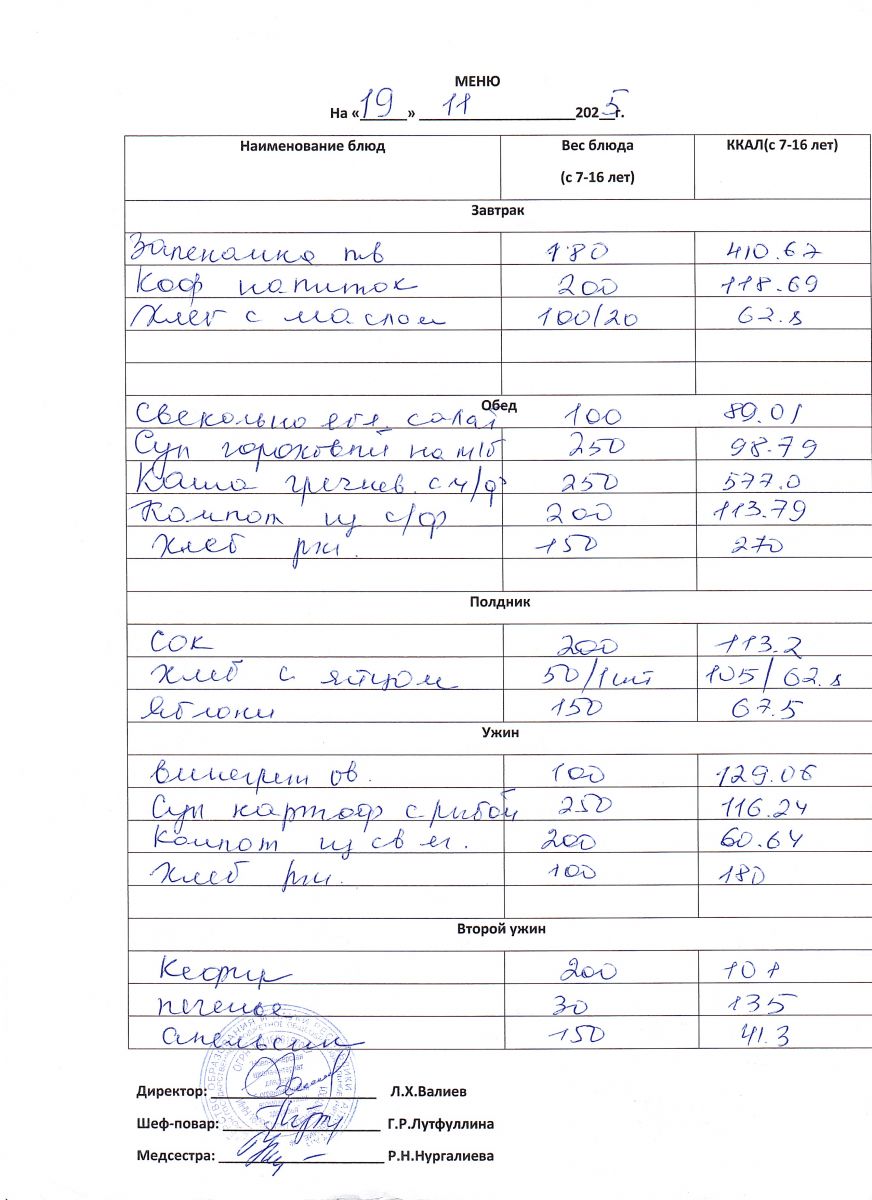 МЕНЮ
На «19» 11 2025 г.
Наименование блюд Вес блюда (с 7-16 лет) ККАЛ(с 7-16 лет)
Завтрак
Запеканка тв 180 410.67
Коф напиток 200 118.69
Хлеб с маслом 100/20 62.8
Обед
салат 100 89.01
Суп гороховый на м/б 250 98.79
Каша гречнев. с 250 577.0
Компот из с/ф 200 113.79
Хлеб рж. 150 270
Полдник
Сок 200 113.2
Хлеб с яйцом 50/1шт 105/62.8
Яблоки 150 67.5
Ужин
Винегрет ов. 100 129.06
Суп картоф с рыбой 250 116.24
Компот из св яг. 200 60.64
Хлеб рж. 100 180
Второй ужин
Кефир 200 101
печенье 30 135
апельсин 150 41.3
Директор: Л.Х.Валиев
Шеф-повар: Г.Р.Лутфуллина
Медсестра: Р.Н.Нургалиева